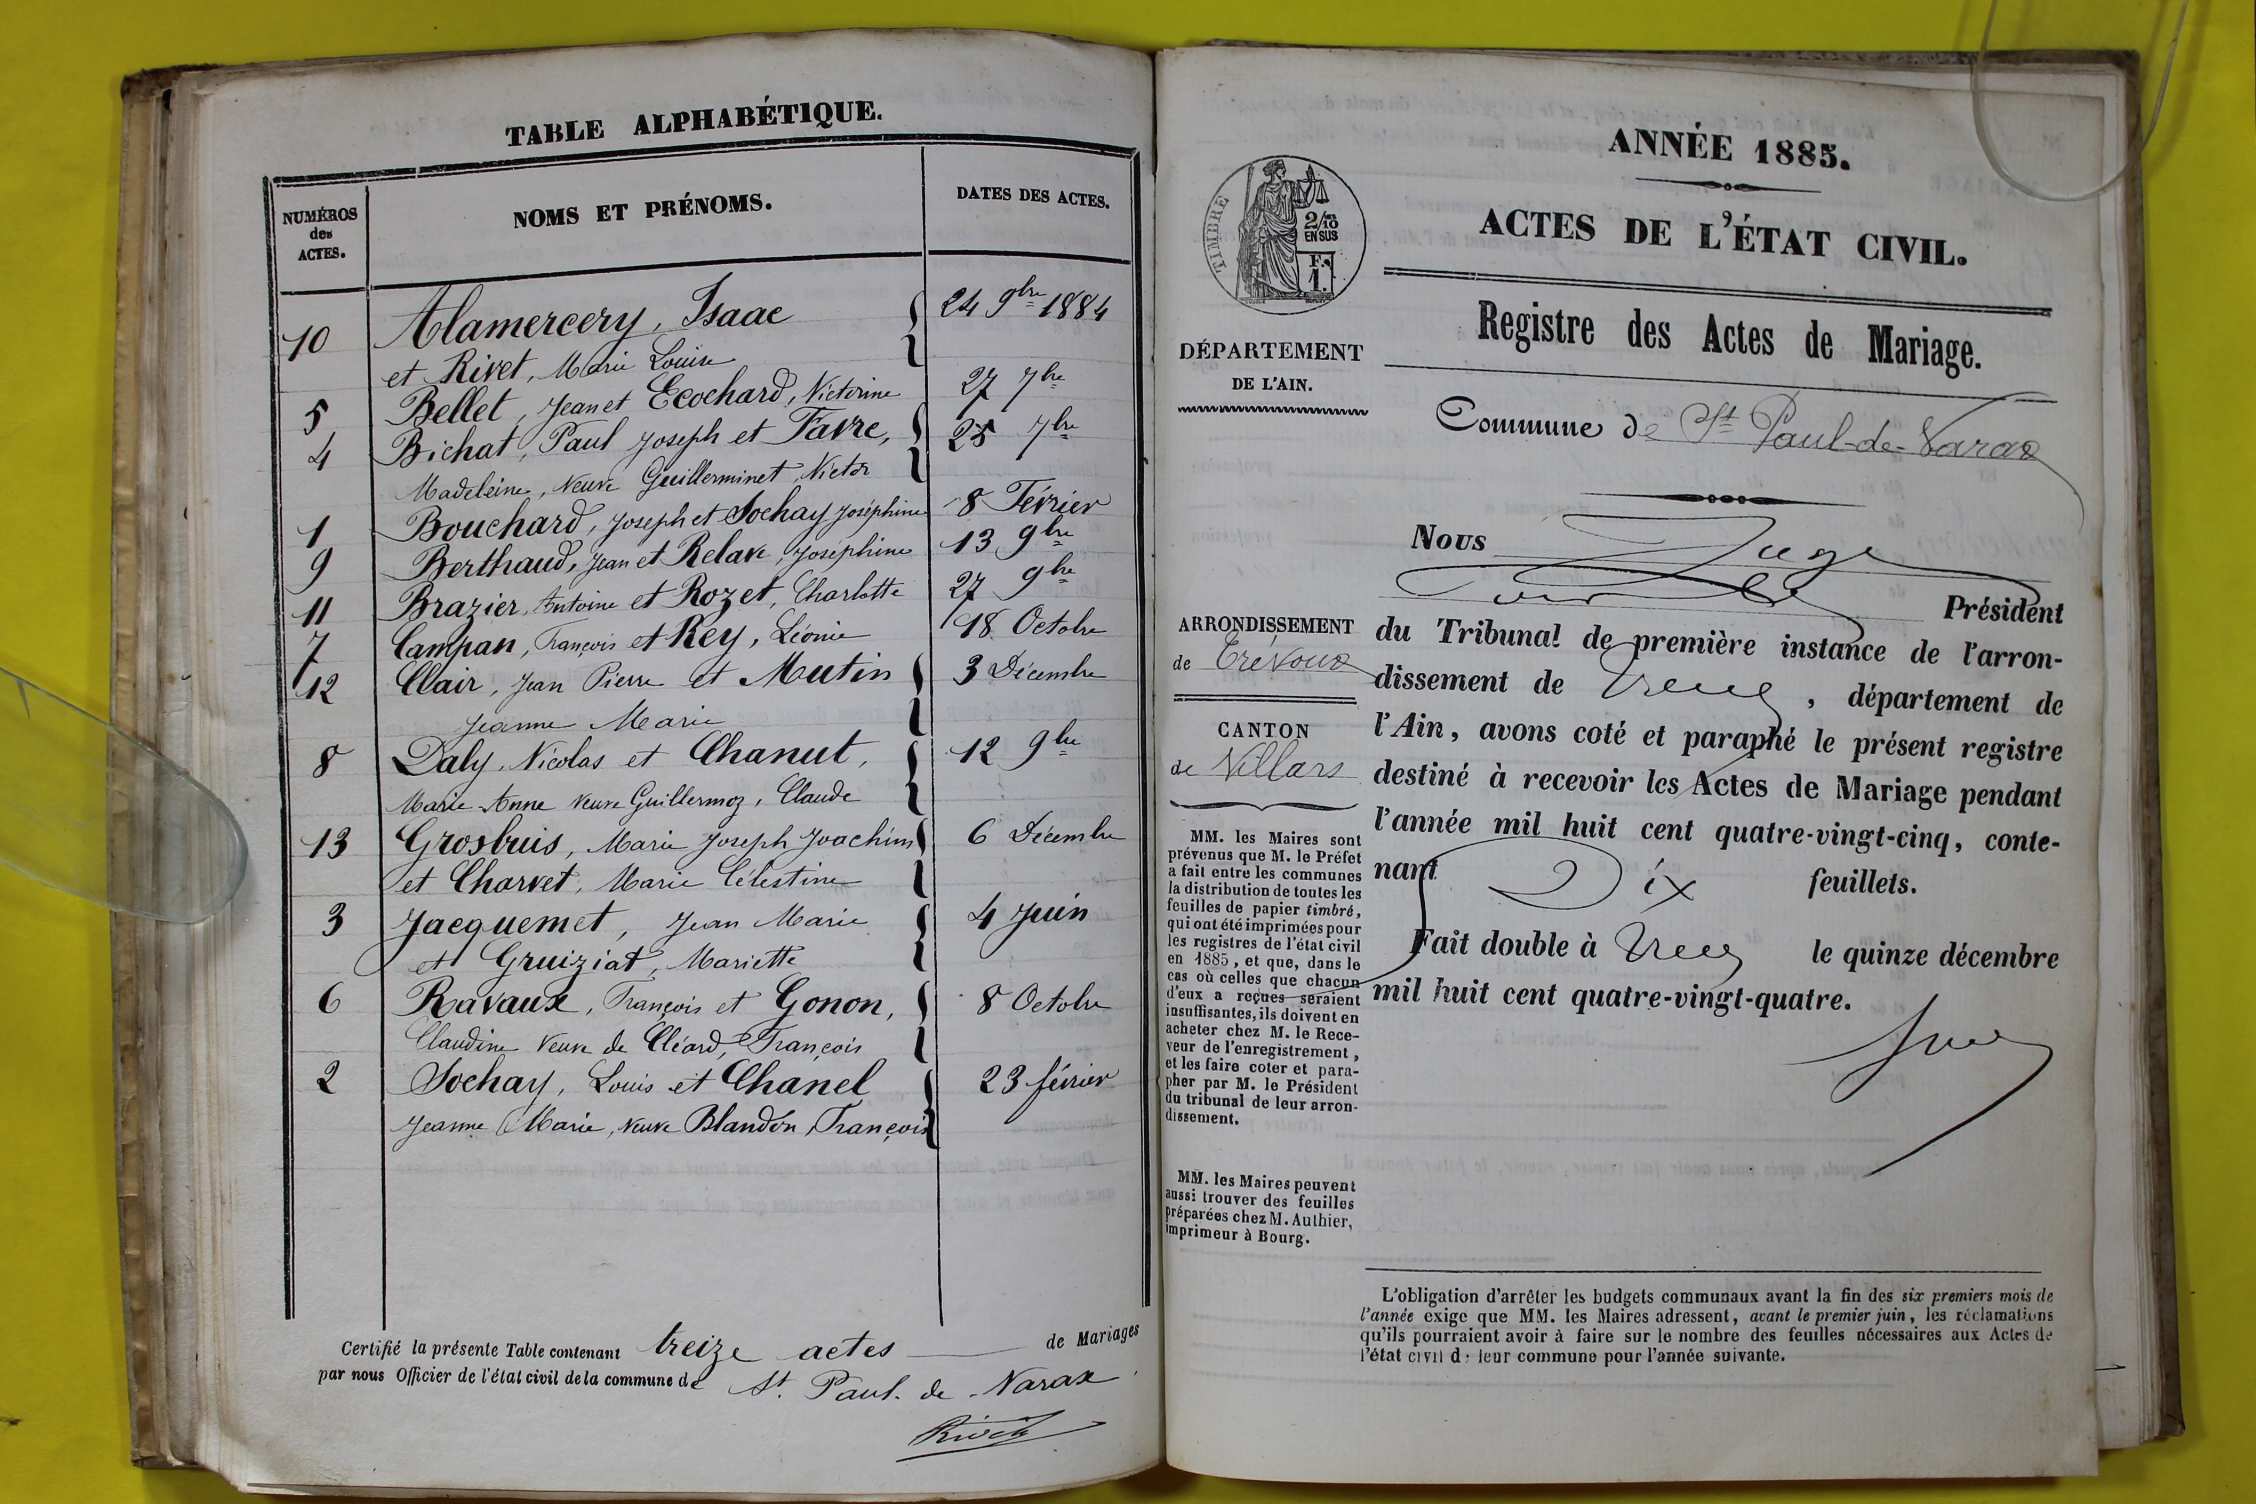 TABLE ALPHABÉTIQUE.
NUMÉROS des ACTES.
NOMS ET PRÉNOMS.
DATES DES ACTES.
10 Alamercery, Isaac 24 9bre 1884
et Rivet, Marie Louise
5 Bellet, Jean et Ecochard, Victorine 27 7bre
4 Bichat, Paul Joseph et Favre, 25 7bre
Madeleine, veuve Guillerminet, Victor
1 Bouchard, Joseph et Sochay Joséphine 8 Février
9 Berthaud, Jean et Relave, Joséphine 13 9bre
11 Brazier, Antoine et Rozet, Charlotte 27 9bre
7 Campan, François et Rey, Léonie 18 Octobre
12 Clair, Jean Pierre et Mutin 3 Décembre
Jeanne Marie
8 Daly, Nicolas et Chanut, 12 9bre
Marie Anne veuve Guillermoz, Claude
13 Grosbuis, Marie Joseph Joachim 6 Décembre
et Charvet, Marie Célestine
3 Jacquemet, Jean Marie 4 Juin
et Gruiziat, Mariette
6 Ravaux, François et Gonon, 8 Octobre
Claudine veuve de Cléard, François
2 Sochay, Louis et Chanel 23 février
Jeanne Marie, veuve Blandon, François
Certifié la présente Table contenant treize actes de Mariages
par nous Officier de l'état civil de la commune de St. Paul-de-Varax
ANNÉE 1885.
ACTES DE L'ÉTAT CIVIL.
TIMBRE
2/10 EN SUS
F. 1.
Registre des Actes de Mariage.
DÉPARTEMENT
DE L'AIN.
Commune de St Paul-de-Varax
Nous Juge
Président
ARRONDISSEMENT
de Trévoux
du Tribunal de première instance de l'arron-
dissement de , département de
l'Ain, avons coté et paraphé le présent registre
destiné à recevoir les Actes de Mariage pendant
l'année mil huit cent quatre-vingt-cinq, conte-
nant Dix feuillets.
Fait double à le quinze décembre
mil huit cent quatre-vingt-quatre.
CANTON
de Villars
MM. les Maires sont
prévenus que M. le Préfet
a fait entre les communes
la distribution de toutes les
feuilles de papier timbré,
qui ont été imprimées pour
les registres de l'état civil
en 1885, et que, dans le
cas où celles que chacun
d'eux a reçues seraient
insuffisantes, ils doivent en
acheter chez M. le Rece-
veur de l'enregistrement,
et les faire coter et para-
pher par M. le Président
du tribunal de leur arron-
dissement.
MM. les Maires peuvent
aussi trouver des feuilles
préparées chez M. Authier,
imprimeur à Bourg.
L'obligation d'arrêter les budgets communaux avant la fin des six premiers mois de
l'année exige que MM. les Maires adressent, avant le premier juin, les réclamations
qu'ils pourraient avoir à faire sur le nombre des feuilles nécessaires aux Actes de
l'état civil de leur commune pour l'année suivante.